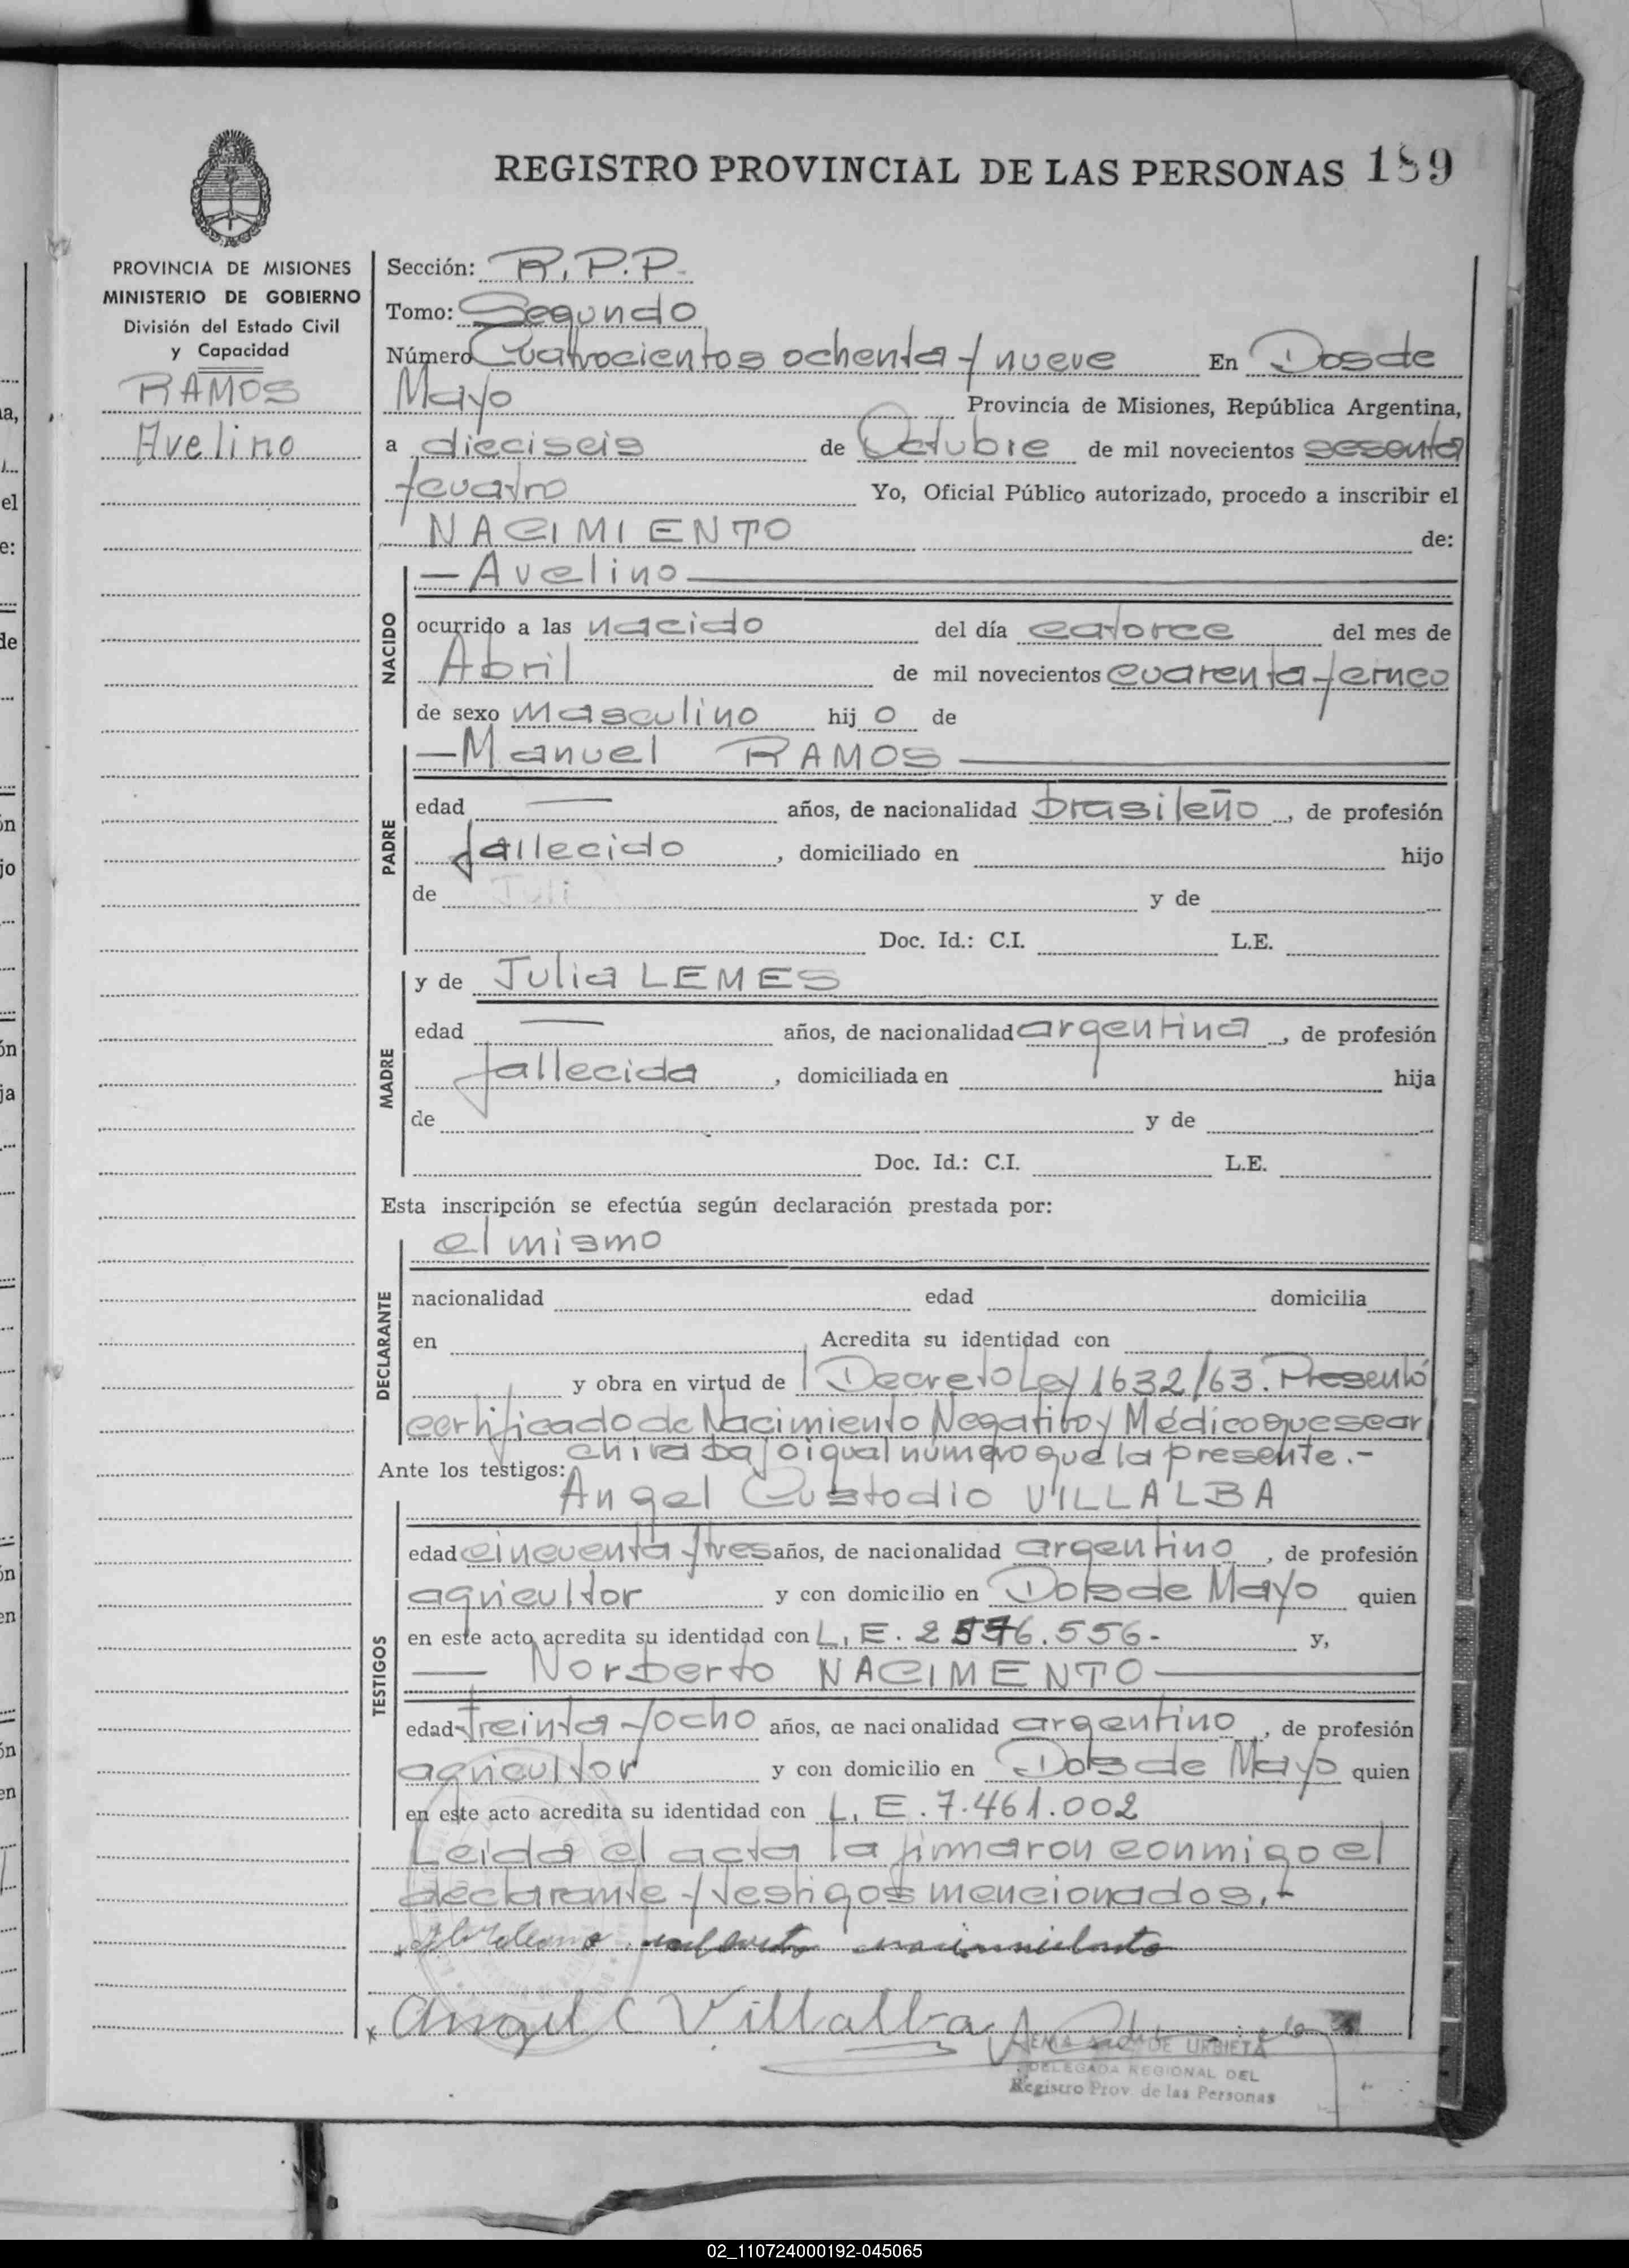 REGISTRO PROVINCIAL DE LAS PERSONAS 189
PROVINCIA DE MISIONES
MINISTERIO DE GOBIERNO
División del Estado Civil
y Capacidad
RAMOS
Avelino
Sección: R.P.P.
Tomo: Segundo
Número Cuatrocientos ochenta y nueve En Dos de
Mayo Provincia de Misiones, República Argentina,
a dieciseis de Octubre de mil novecientos sesenta
y cuatro Yo, Oficial Público autorizado, procedo a inscribir el
NACIMIENTO de:
NACIDO
— Avelino
ocurrido a las nacido del día catorce del mes de
Abril de mil novecientos cuarenta y cinco
de sexo masculino hij o de
PADRE
— Manuel RAMOS
edad — años, de nacionalidad brasileño, de profesión
fallecido, domiciliado en hijo
de Juli y de
Doc. Id.: C.I. L.E.
MADRE
y de Julia LEMES
edad — años, de nacionalidad argentina, de profesión
fallecida, domiciliada en hija
de y de
Doc. Id.: C.I. L.E.
Esta inscripción se efectúa según declaración prestada por:
DECLARANTE
el mismo
nacionalidad edad domicilia
en Acredita su identidad con
y obra en virtud de Decreto Ley 1632/63. Presentó
certificado de Nacimiento Negativo y Médico que se ar
chiva bajo igual número que la presente.-
Ante los testigos:
TESTIGOS
Angel Custodio VILLALBA
edad cincuenta y tres años, de nacionalidad argentino, de profesión
agricultor y con domicilio en Dos de Mayo quien
en este acto acredita su identidad con L.E. 2576.556- y,
— Norberto NACIMENTO
edad treinta y ocho años, de nacionalidad argentino, de profesión
agricultor y con domicilio en Dos de Mayo quien
en este acto acredita su identidad con L.E. 7.461.002
Leida el acta la firmaron conmigo el
declarante y testigos mencionados.-
Angel C Villalba
DE URBIETA
DELEGADA REGIONAL DEL
Registro Prov. de las Personas
02_110724000192-045065